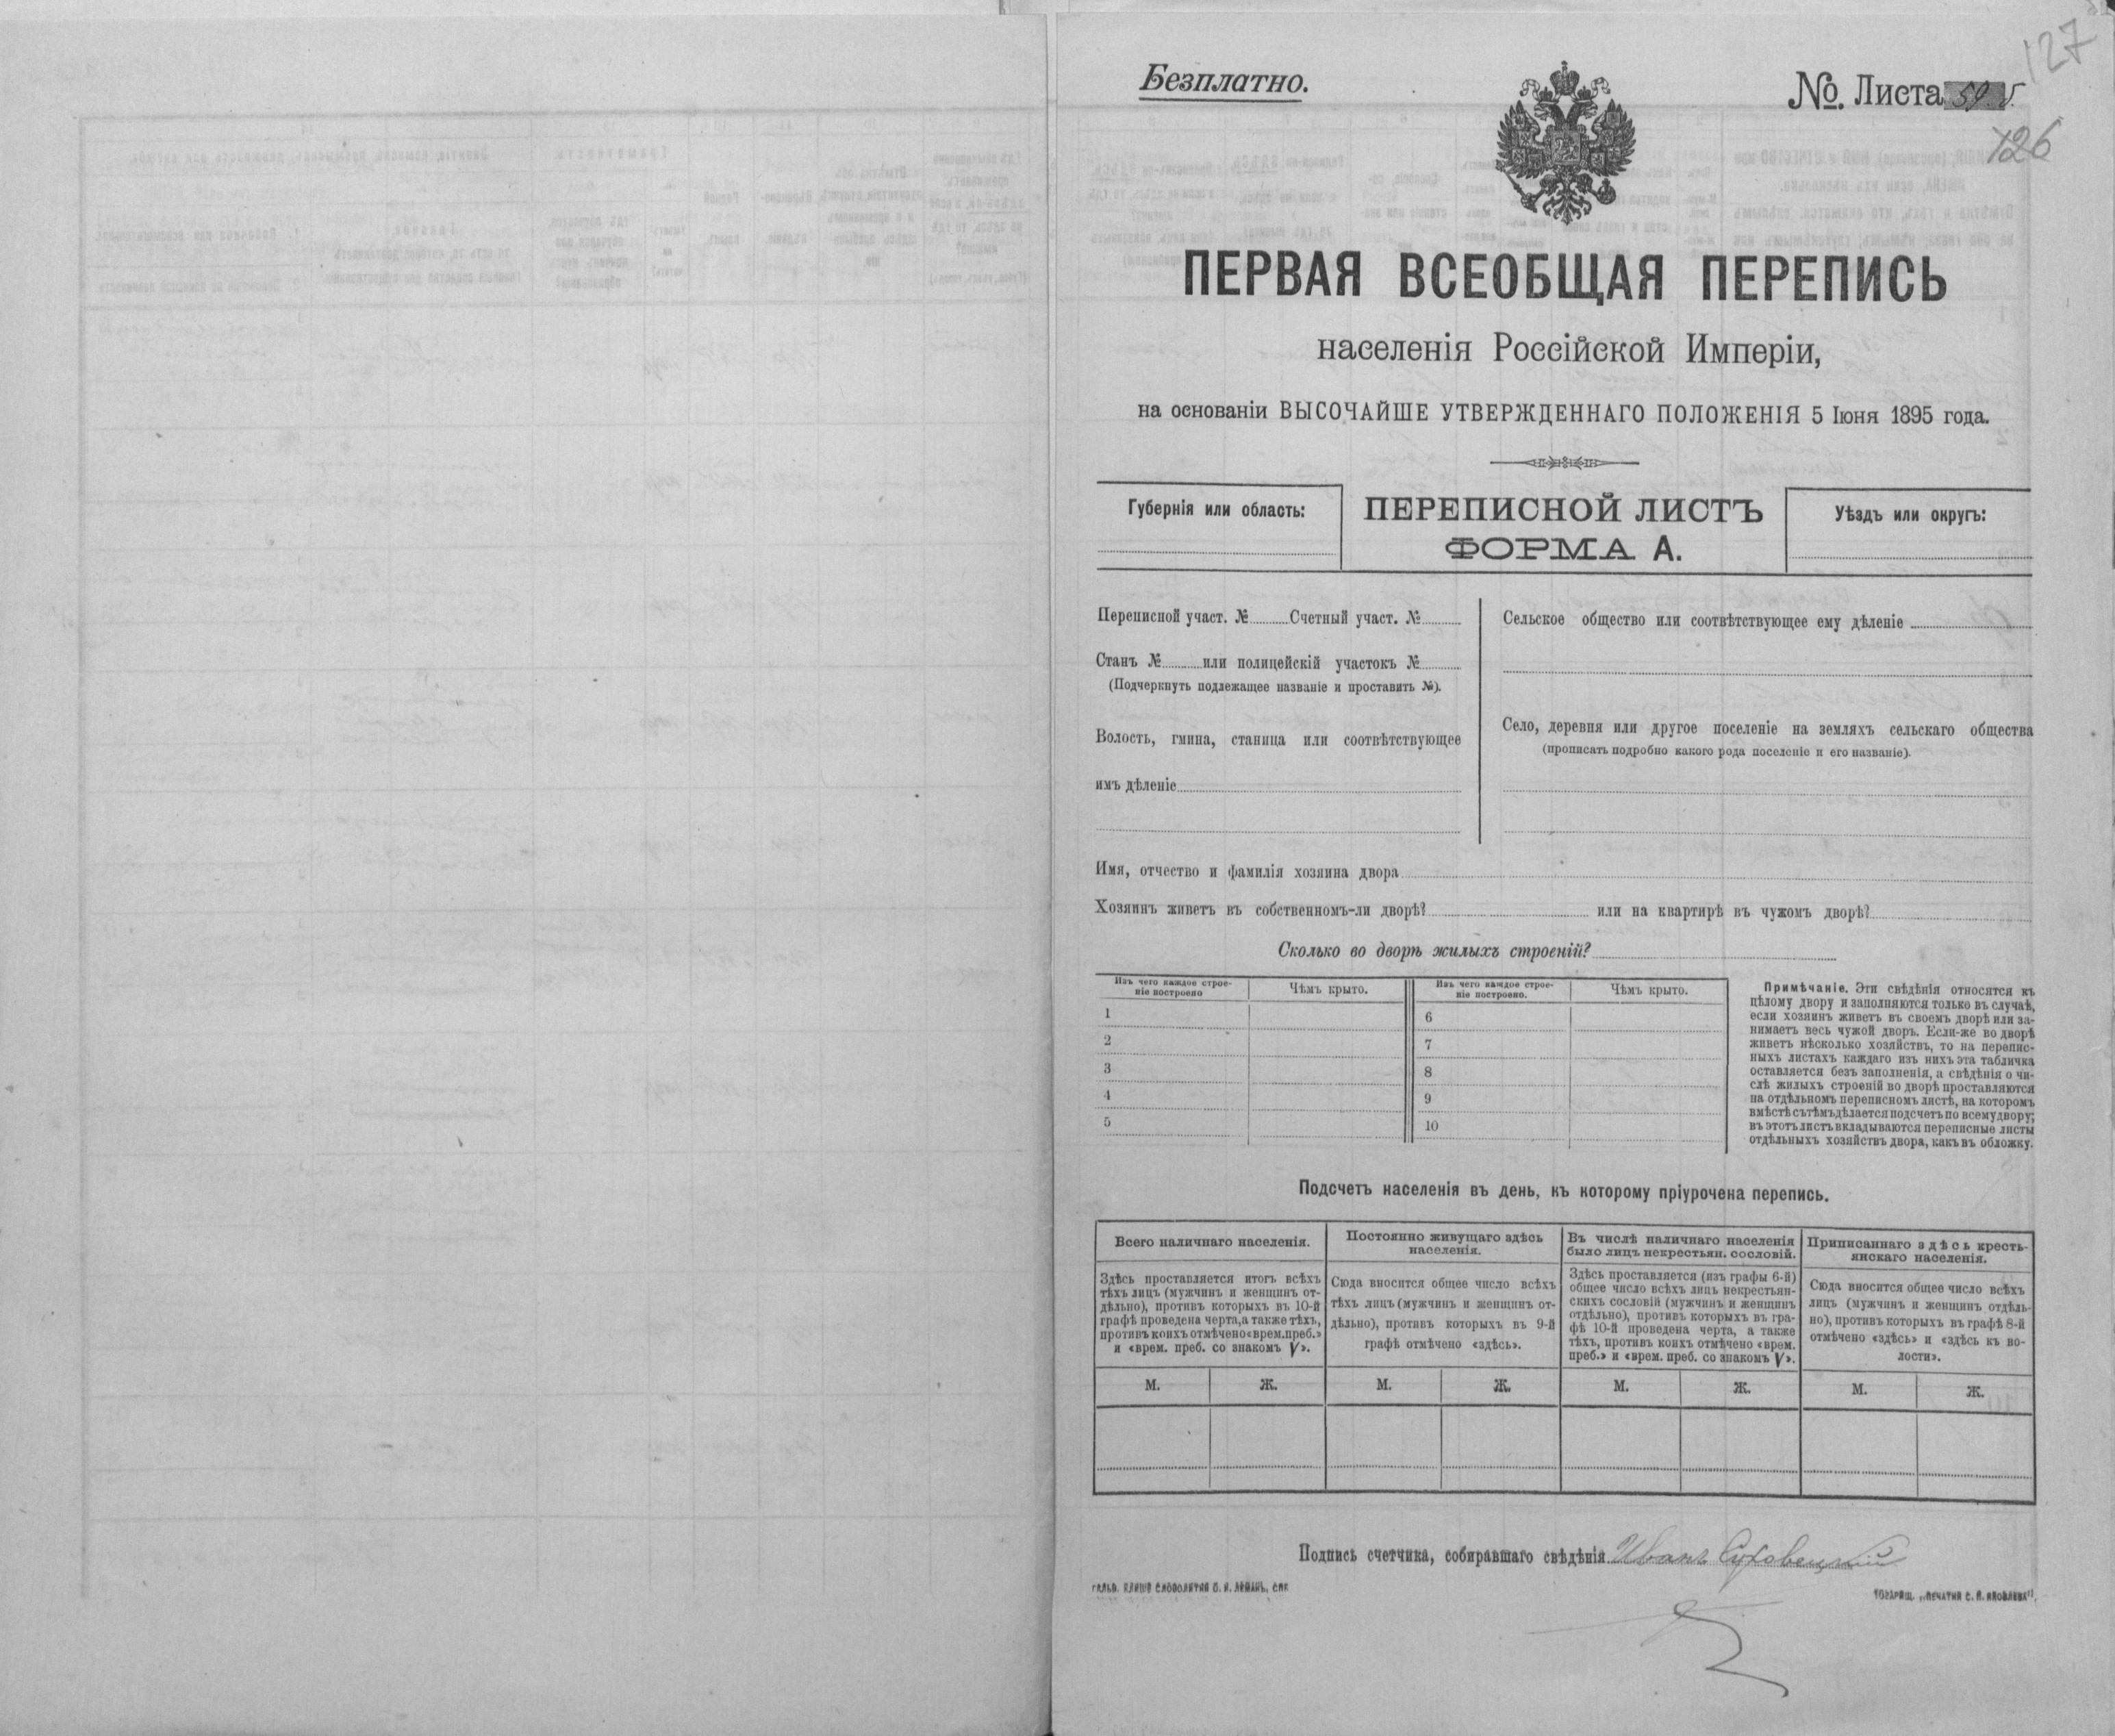 127
Безплатно.
№. Листа 59
126
ПЕРВАЯ ВСЕОБЩАЯ ПЕРЕПИСЬ
населенія Россійской Имперіи,
на основаніи ВЫСОЧАЙШЕ УТВЕРЖДЕННАГО ПОЛОЖЕНІЯ 5 Іюня 1895 года.
Губернія или область:
ПЕРЕПИСНОЙ ЛИСТЪ
ФОРМА А.
Уѣздъ или округъ:
Переписной участ. № Счетный участ. №
Станъ № или полицейскій участокъ №
(Подчеркнуть подлежащее названіе и проставить №).
Волость, гмина, станица или соотвѣтствующее
имъ дѣленіе
Сельское общество или соотвѣтствующее ему дѣленіе
Село, деревня или другое поселеніе на земляхъ сельскаго общества
(прописать подробно какого рода поселеніе и его названіе).
Имя, отчество и фамилія хозяина двора
Хозяинъ живетъ въ собственномъ-ли дворѣ? или на квартирѣ въ чужомъ дворѣ?
Сколько во дворѣ жилыхъ строеній?
Изъ чего каждое строе-
ніе построено
Чѣмъ крыто.
1
2
3
4
5
Изъ чего каждое строе-
ніе построено.
Чѣмъ крыто.
6
7
8
9
10
Примѣчаніе. Эти свѣдѣнія относятся къ
цѣлому двору и заполняются только въ случаѣ,
если хозяинъ живетъ въ своемъ дворѣ или за-
нимаетъ весь чужой дворъ. Если-же во дворѣ
живетъ нѣсколько хозяйствъ, то на перепис-
ныхъ листахъ каждаго изъ нихъ эта табличка
оставляется безъ заполненія, а свѣдѣнія о чи-
слѣ жилыхъ строеній во дворѣ проставляются
на отдѣльномъ переписномъ листѣ, на которомъ
вмѣстѣ съ тѣмъ дѣлается подсчетъ по всему двору;
въ этотъ листъ вкладываются переписные листы
отдѣльныхъ хозяйствъ двора, какъ въ обложку.
Подсчетъ населенія въ день, къ которому пріурочена перепись.
Всего наличнаго населенія.
Здѣсь проставляется итогъ всѣхъ
тѣхъ лицъ (мужчинъ и женщинъ от-
дѣльно), противъ которыхъ въ 10-й
графѣ проведена черта, а также тѣхъ,
противъ коихъ отмѣчено «врем. преб.»
и «врем. преб. со знакомъ V».
М. Ж.
Постоянно живущаго здѣсь
населенія.
Сюда вносится общее число всѣхъ
тѣхъ лицъ (мужчинъ и женщинъ от-
дѣльно), противъ которыхъ въ 9-й
графѣ отмѣчено «здѣсь».
М. Ж.
Въ числѣ наличнаго населенія
было лицъ некрестьян. сословій.
Здѣсь проставляется (изъ графы 6-й)
общее число всѣхъ лицъ некрестьян-
скихъ сословій (мужчинъ и женщинъ
отдѣльно), противъ которыхъ въ гра-
фѣ 10-й проведена черта, а также
тѣхъ, противъ коихъ отмѣчено «врем.
преб.» и «врем. преб. со знакомъ V».
М. Ж.
Приписаннаго здѣсь кресть-
янскаго населенія.
Сюда вносится общее число всѣхъ
лицъ (мужчинъ и женщинъ отдѣль-
но), противъ которыхъ въ графѣ 8-й
отмѣчено «здѣсь» и «здѣсь къ во-
лости».
М. Ж.
Подпись счетчика, собиравшаго свѣдѣнія Иванъ Суховецкій
ГАЛЬВ. КЛИШЕ СЛОВОЛИТНИ О. И. ЛЕМАНЪ, СПБ
ТОВАРИЩ. „ПЕЧАТНЯ С. П. ЯКОВЛЕВА".